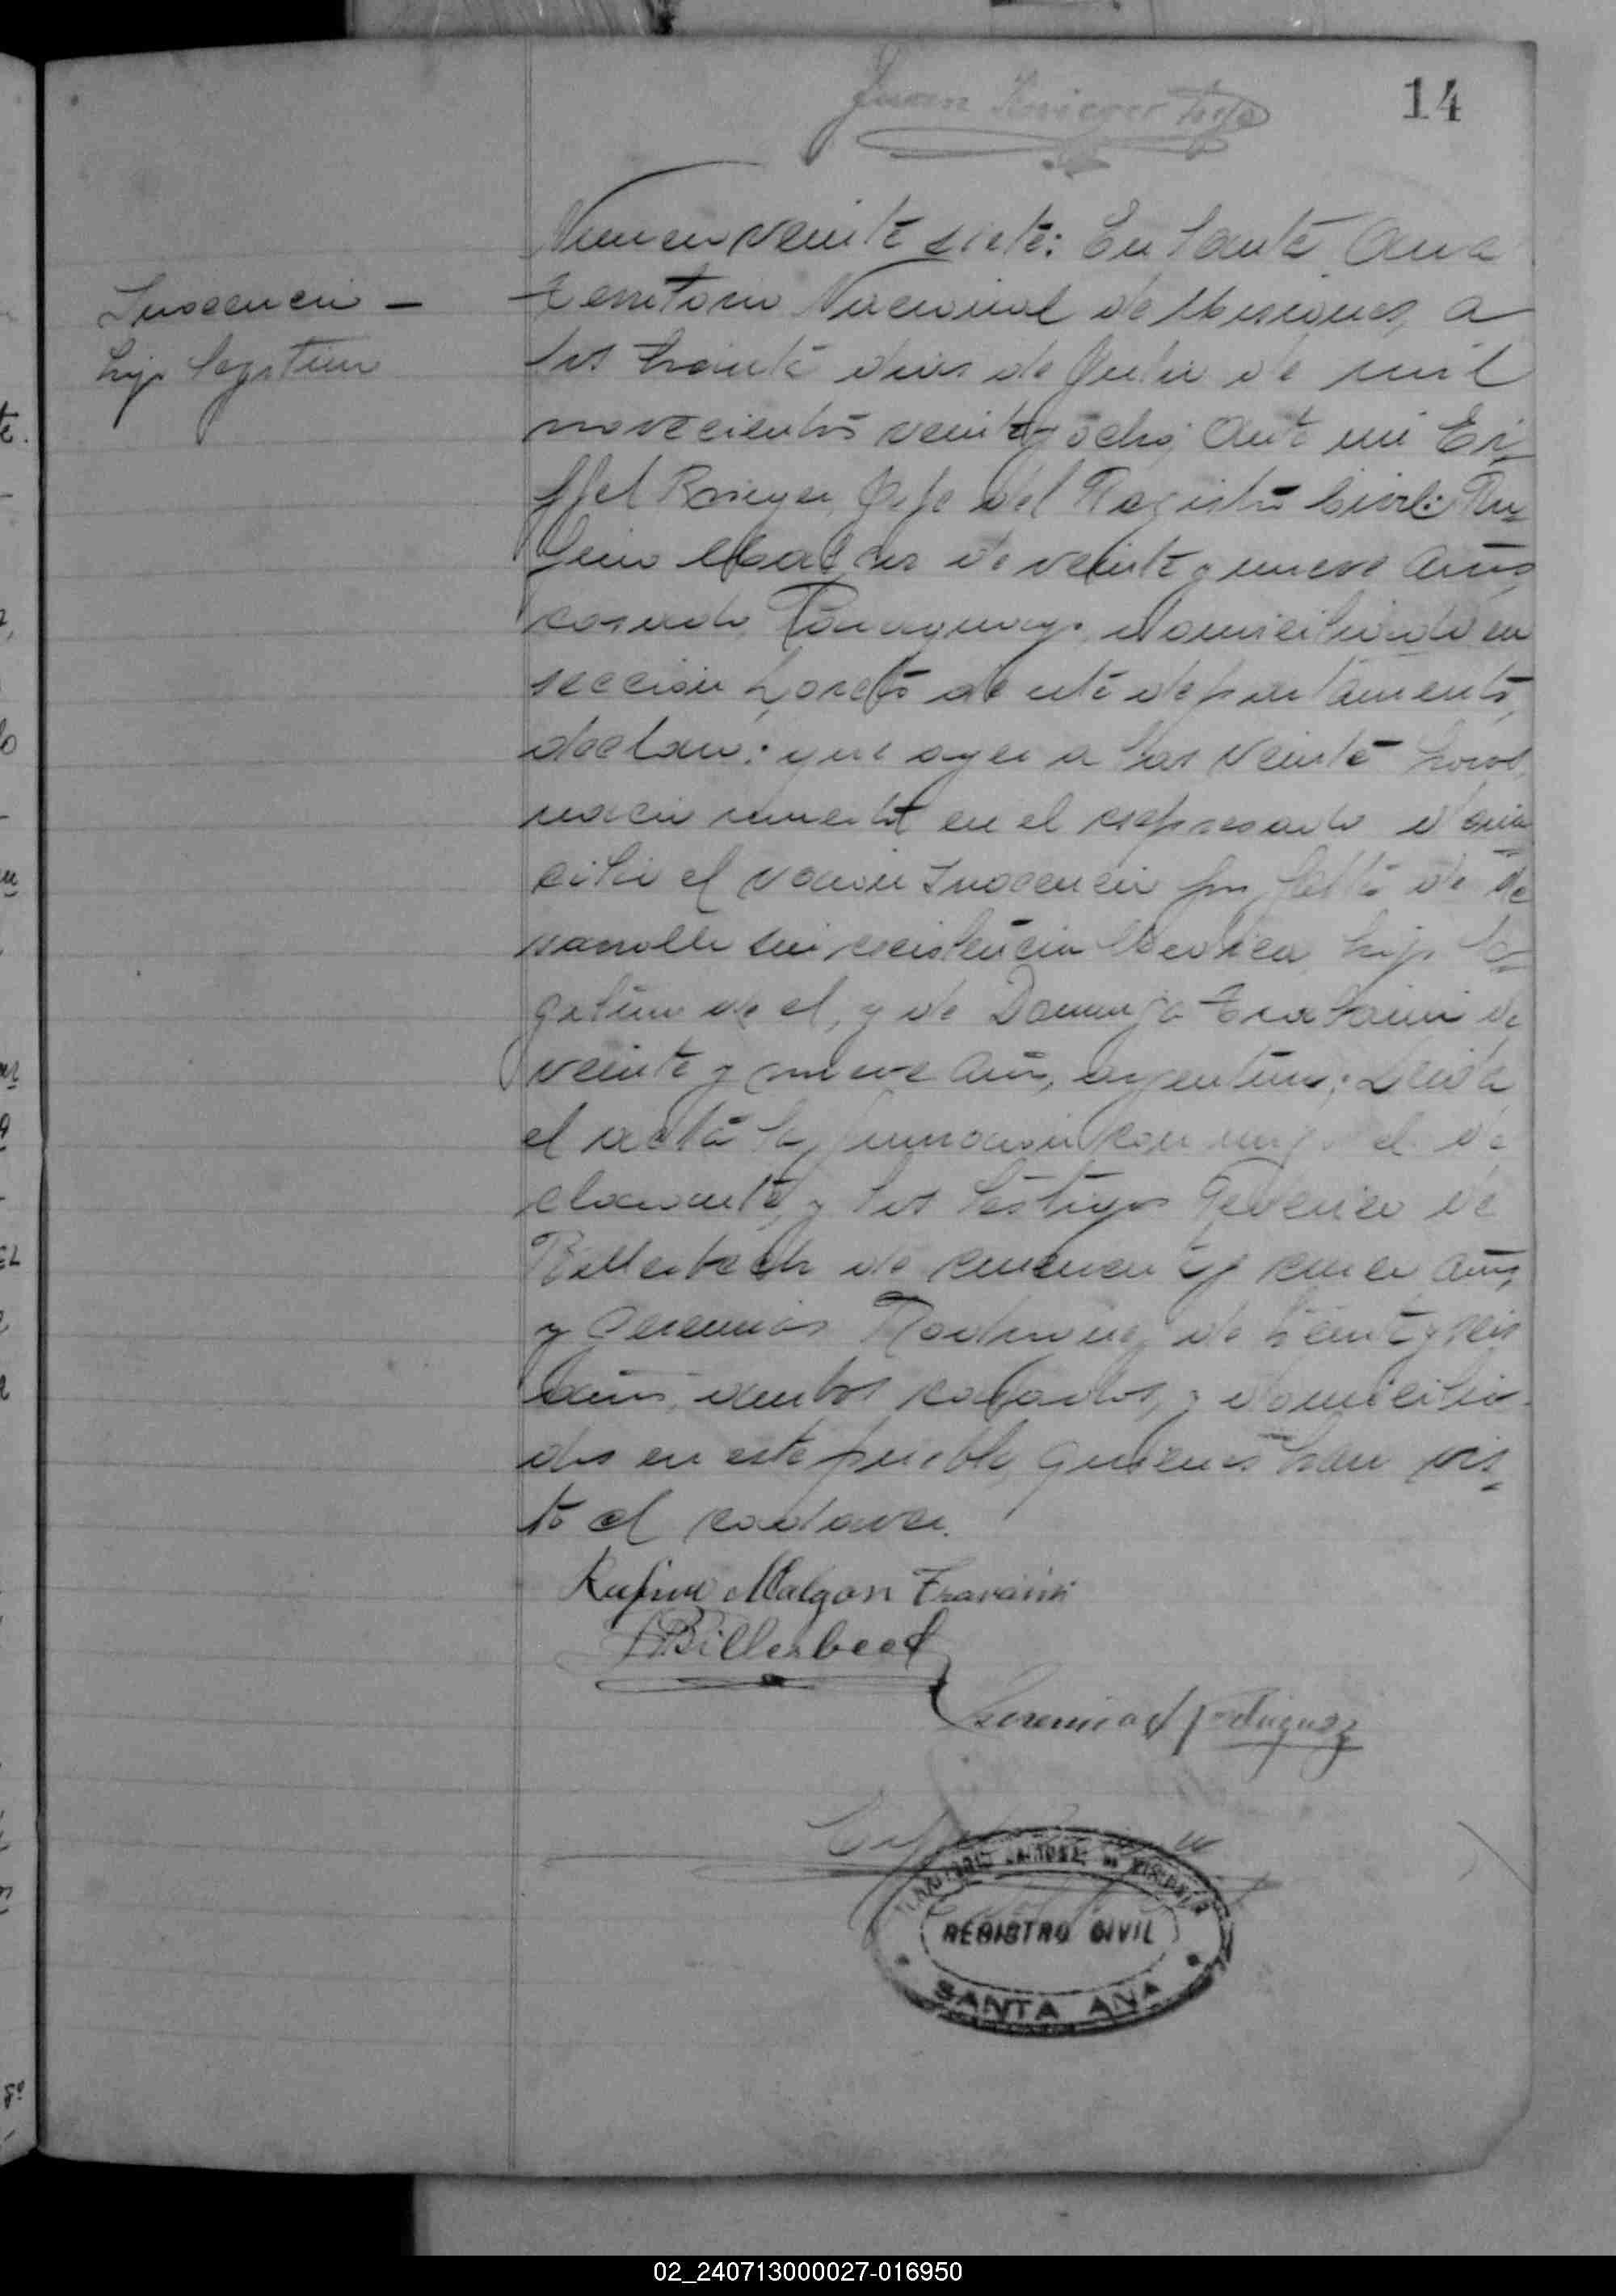 14
Inocencio -
hijo legitimo
Numero veinte siete: En Santa Ana
territorio Nacional de Misiones, a
los treinta dias de Julio de mil
novecientos veinte y ocho; Ante mi
Jefe del Registro Civil: Ru
fino de veinte y nueve años
casado, Paraguayo, domiciliado en
seccion Loreto de este departamento,
declaro: que ayer a las veinte horas
nacio muerto en el expresado domi
cilio el varon Inocencio por falta de de
sarrollo sin asistencia Medica hijo le
gitimo de el, y de Dominga de
veinte y nueve años, argentina; Leida
el acta la firmaron conmigo el de
clarante, y los testigos Federico de
Billerbeck de cincuenta y cinco años,
y Geremias Rodriguez de y seis
años, ambos casados, y domicilia
dos en este pueblo, quienes han vis
to el cadaver.
Rufino Malgon Travaini
Billerbeck
Geremias Rodriguez
TERRITORIO NACIONAL DE MISIONES
REGISTRO CIVIL
SANTA ANA
02_240713000027-016950